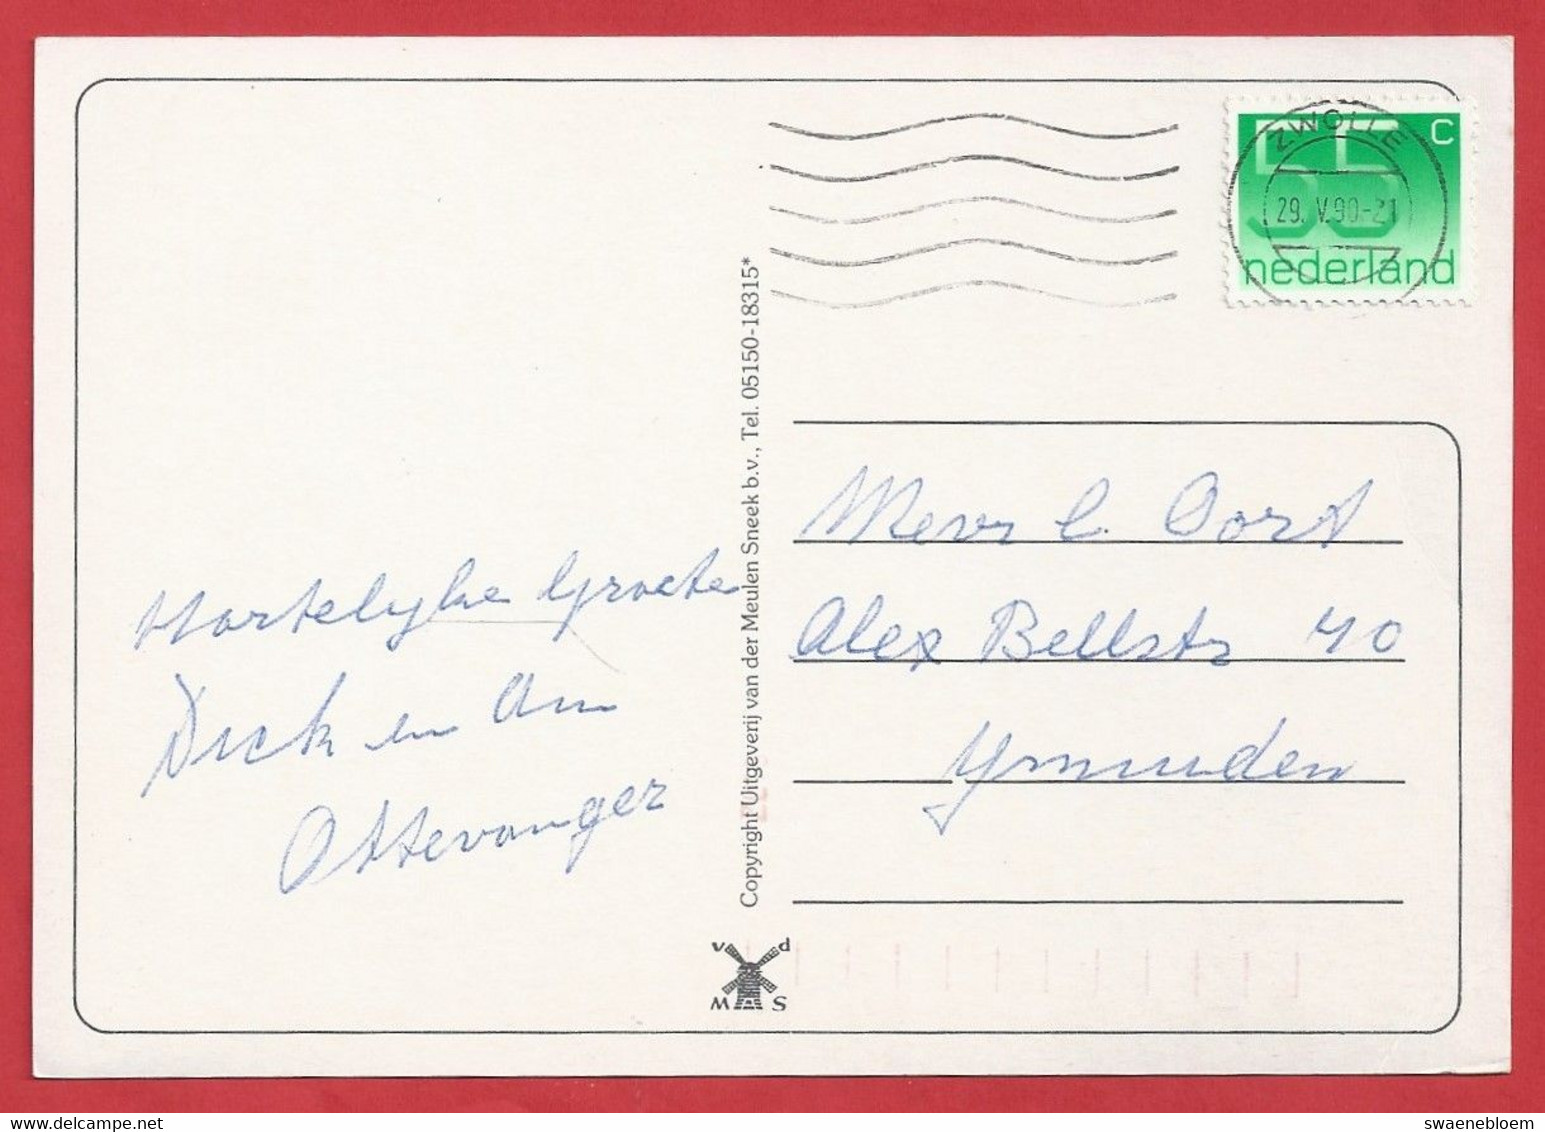 ZWOLLE
55 C
29. V.90.-21
nederland
Hartelyke Groete
Dick en Ann
Ottevanger
Copyright Uitgeverij van der Meulen Sneek b.v., Tel. 05150-18315*
Mevr C. Oort
Alex Bellstr 40
Ymuiden
v d
M S
delcampe.net
swaenebloem